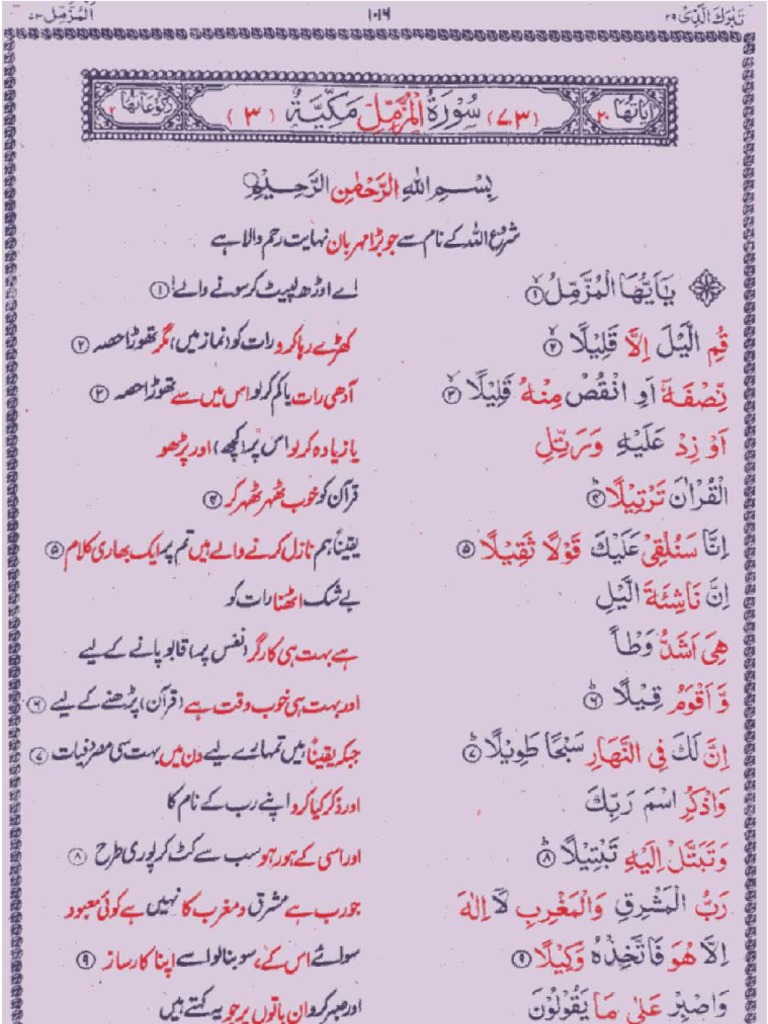 تَبٰرَكَ الَّذِیْ ۲۹ ۱۰۱۶ اَلْمُزَّمِّل ۷۳
اٰیَاتُهَا ۲۰ (۷۳) سُوْرَةُ الْمُزَّمِّلِ مَكِّيَّةٌ (۳) رُكُوْعَاتُهَا ۲
بِسْمِ اللهِ الرَّحْمٰنِ الرَّحِيْمِ
شروع اللہ کے نام سے جو بڑا مہربان نہایت رحم والا ہے
يٰۤاَيُّهَا الْمُزَّمِّلُ ۱ اے اوڑھ لپیٹ کر سونے والے! ۱
قُمِ الَّيْلَ اِلَّا قَلِيْلًا ۲ کھڑے رہا کرو رات کو (نماز میں) مگر تھوڑا حصہ ۲
نِّصْفَهٗۤ اَوِ انْقُصْ مِنْهُ قَلِيْلًا ۳ آدھی رات یا کم کر لو اس میں سے تھوڑا حصہ ۳
اَوْ زِدْ عَلَيْهِ وَرَتِّلِ یا زیادہ کر لو اس پر (کچھ) اور پڑھو
الْقُرْاٰنَ تَرْتِيْلًا ۴ قرآن کو خوب ٹھہر ٹھہر کر ۴
اِنَّا سَنُلْقِیْ عَلَيْكَ قَوْلًا ثَقِيْلًا ۵ یقیناً ہم نازل کرنے والے ہیں تم پر ایک بھاری کلام ۵
اِنَّ نَاشِئَةَ الَّيْلِ بے شک اٹھنا رات کو
هِیَ اَشَدُّ وَطْاً ہے بہت ہی کارگر (نفس پر) قابو پانے کے لیے
وَّ اَقْوَمُ قِيْلًا ۶ اور بہت ہی خوب وقت ہے (قرآن) پڑھنے کے لیے ۶
اِنَّ لَكَ فِی النَّهَارِ سَبْحًا طَوِيْلًا ۷ جبکہ یقیناً ہیں تمہارے لیے دن میں بہت سی مصروفیات ۷
وَاذْكُرِ اسْمَ رَبِّكَ اور ذکر کیا کرو اپنے رب کے نام کا
وَتَبَتَّلْ اِلَيْهِ تَبْتِيْلًا ۸ اور اسی کے ہو رہو سب سے کٹ کر پوری طرح ۸
رَبُّ الْمَشْرِقِ وَالْمَغْرِبِ لَاۤ اِلٰهَ جو رب ہے مشرق و مغرب کا نہیں ہے کوئی معبود
اِلَّا هُوَ فَاتَّخِذْهُ وَكِيْلًا ۹ سوائے اس کے، سو بنا لو اسے اپنا کارساز ۹
وَاصْبِرْ عَلٰی مَا يَقُوْلُوْنَ اور صبر کرو ان باتوں پر جو یہ کہتے ہیں